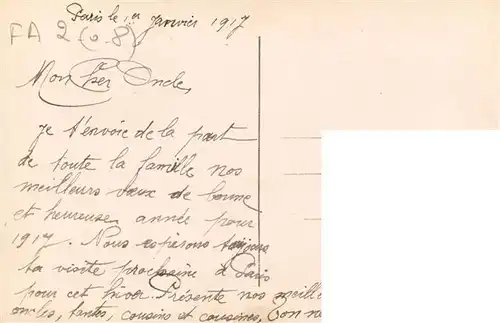 Paris le 1er janvier 1917
FA 2 (08)
Mon cher Oncle,
Je t'envoie de la part
de toute la famille nos
meilleurs vœux de bonne
et heureuse année pour
1917. Nous espérons toujours
ta visite prochaine à Paris
pour cet hiver. Présente nos meille
oncles, tantes, cousins et cousines,